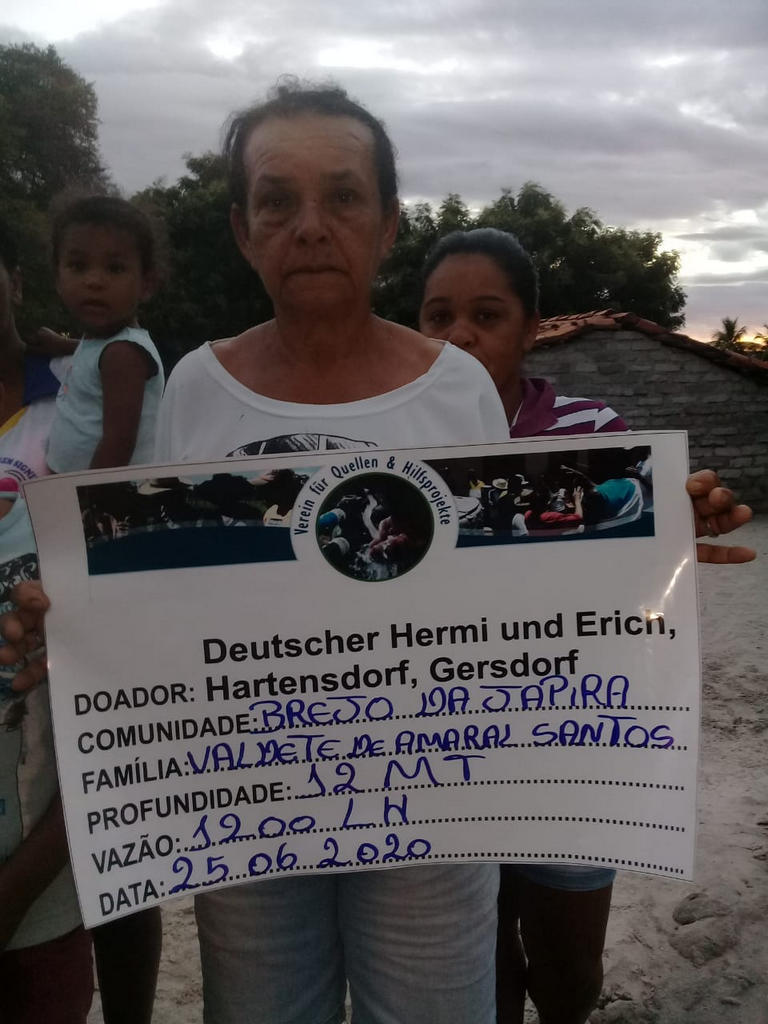 Verein für Quellen & Hilfsprojekte
Deutscher Hermi und Erich,
DOADOR: Hartensdorf, Gersdorf
COMUNIDADE: BREJO DA JAPIRA
FAMÍLIA: VALDETE DE AMARAL SANTOS
PROFUNDIDADE: 12 MT
VAZÃO: 1200 LH
DATA: 25 06 2020